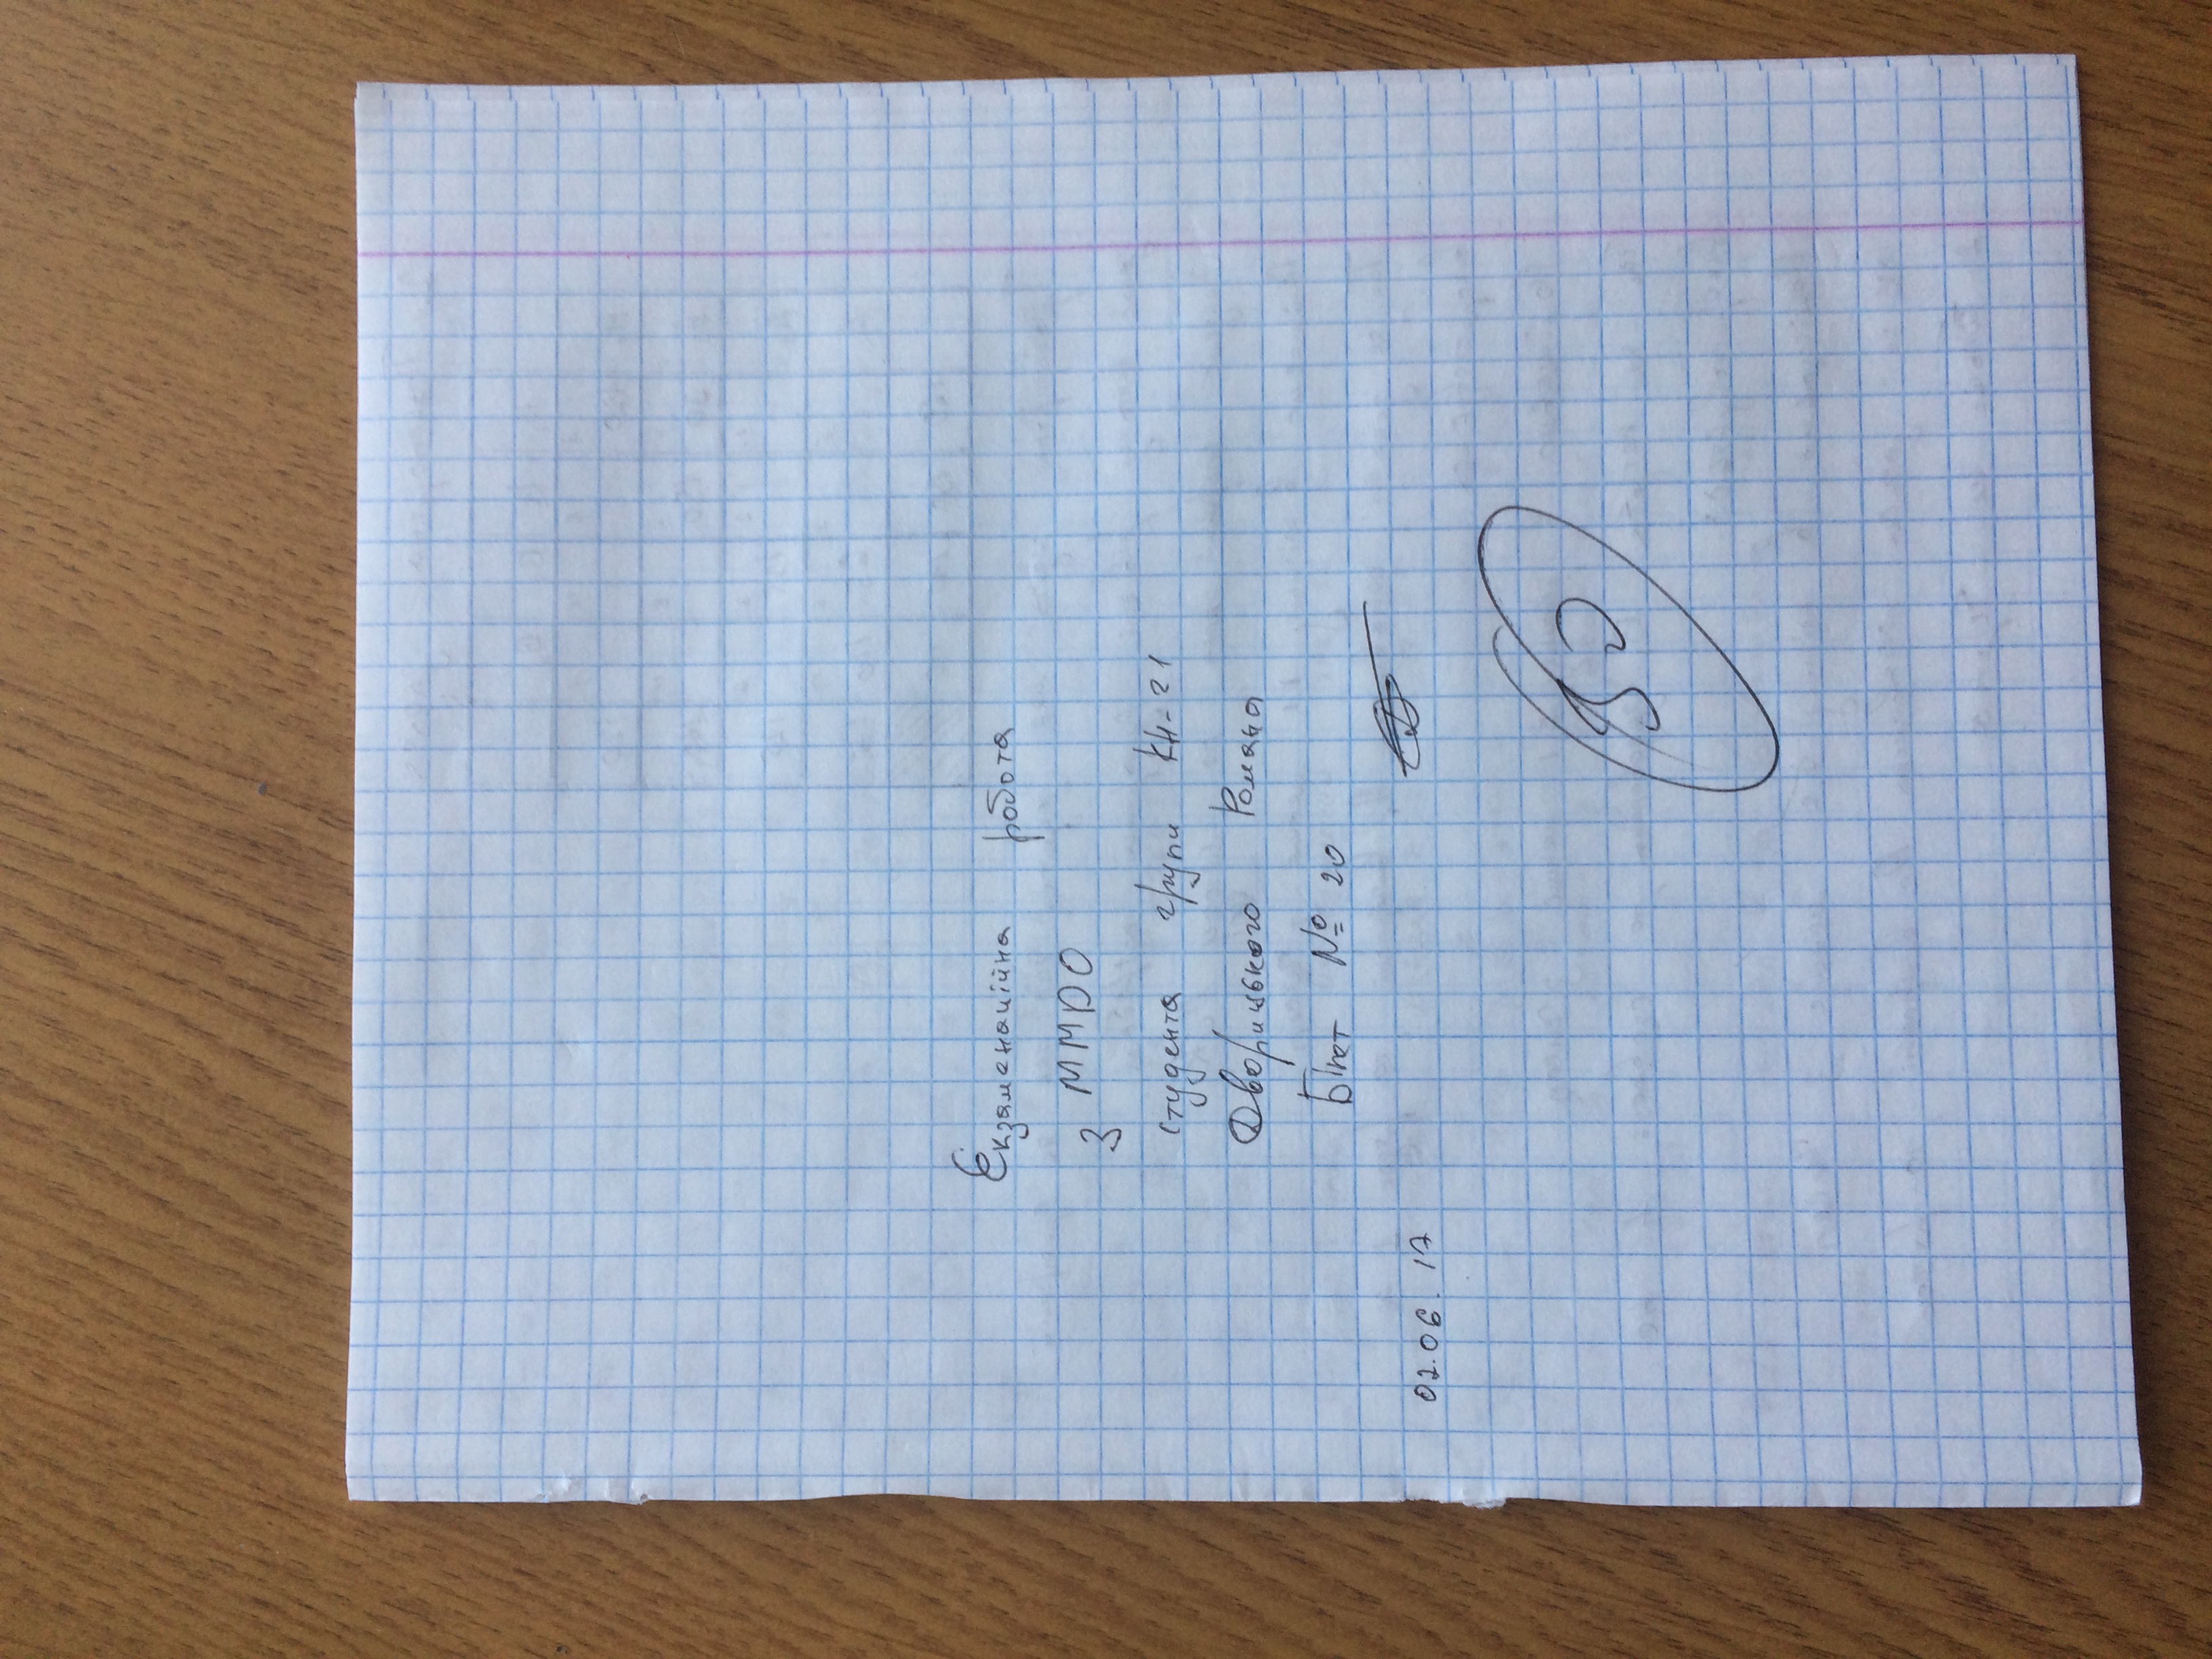 Екзаменаційна робота
з ММДО
студента групи КН-21
Дворицького Романа
Білет № 20
02.06.17